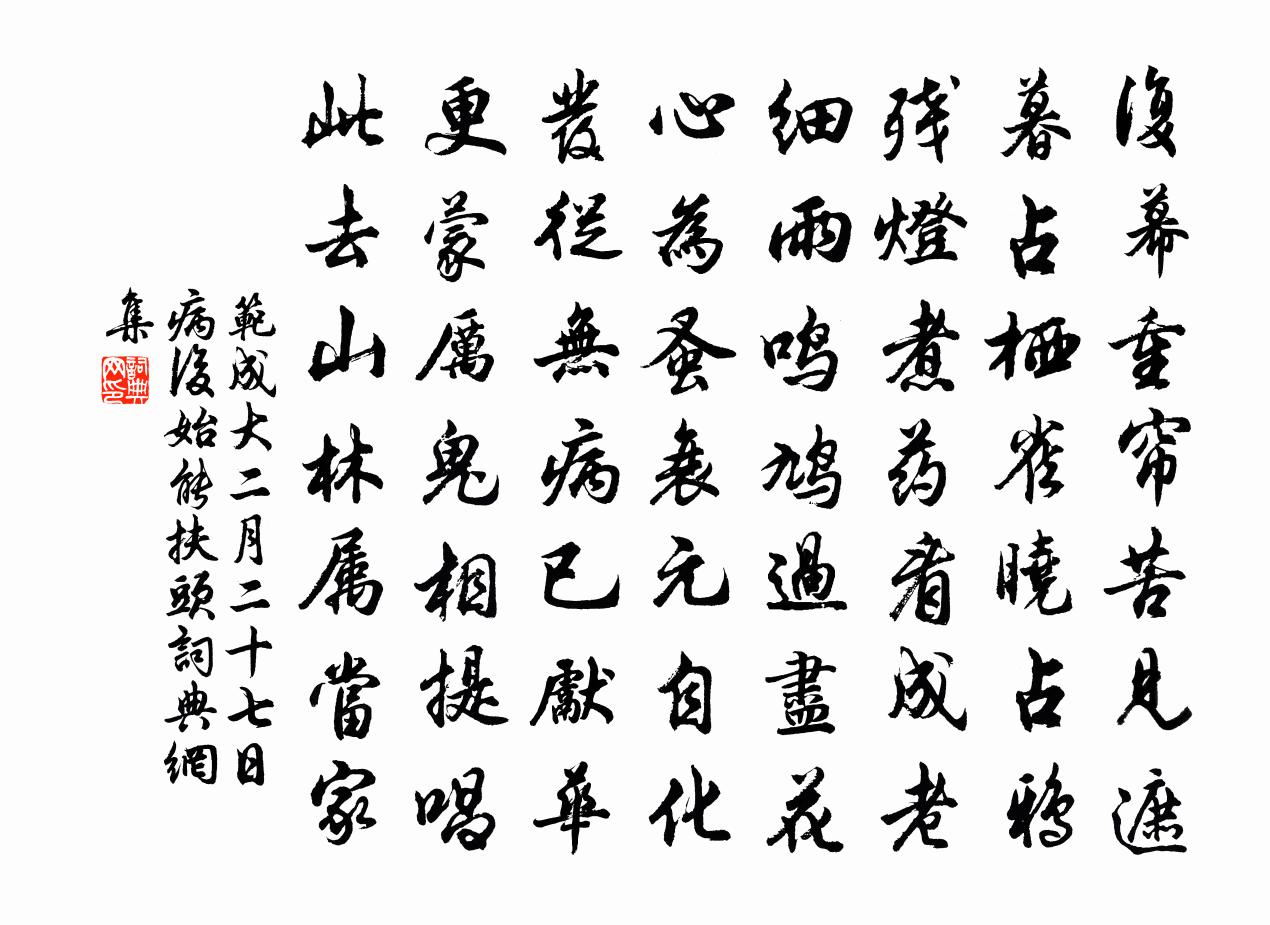 復幕重帘苦見遮
暮占栖雀曉占鸦
残燈煮药看成老
细雨鸣鸠過盡花
心為蚤衰元自化
發從無病已獻華
更蒙厲鬼相提唱
此去山林属當家
範成大二月二十七日
病後始能扶頭詞典網
集
詞典
网印